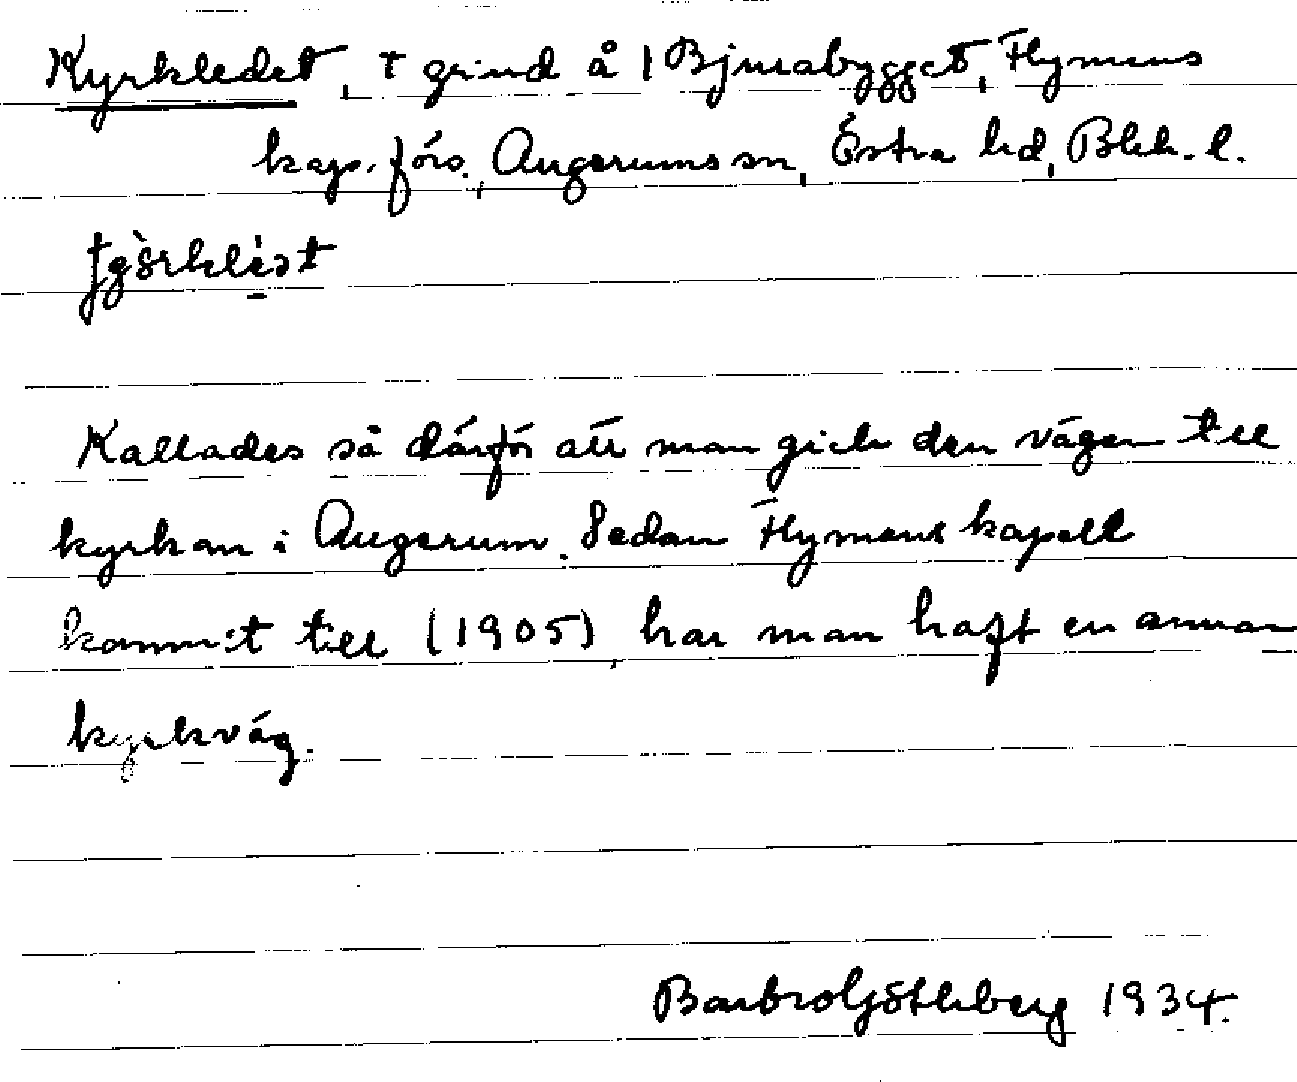 Kyrkledet, † grind å 1 Bjurabygget, Flymens
kap. förs., Augerums sn, Östra hd, Blek. l.
Kallades så därför att man gick den vägen till
kyrkan i Augerum. Sedan Flymens kapell
kommit till (1905), har man haft en annan
kyrkväg.
Barbro Götheberg 1934.